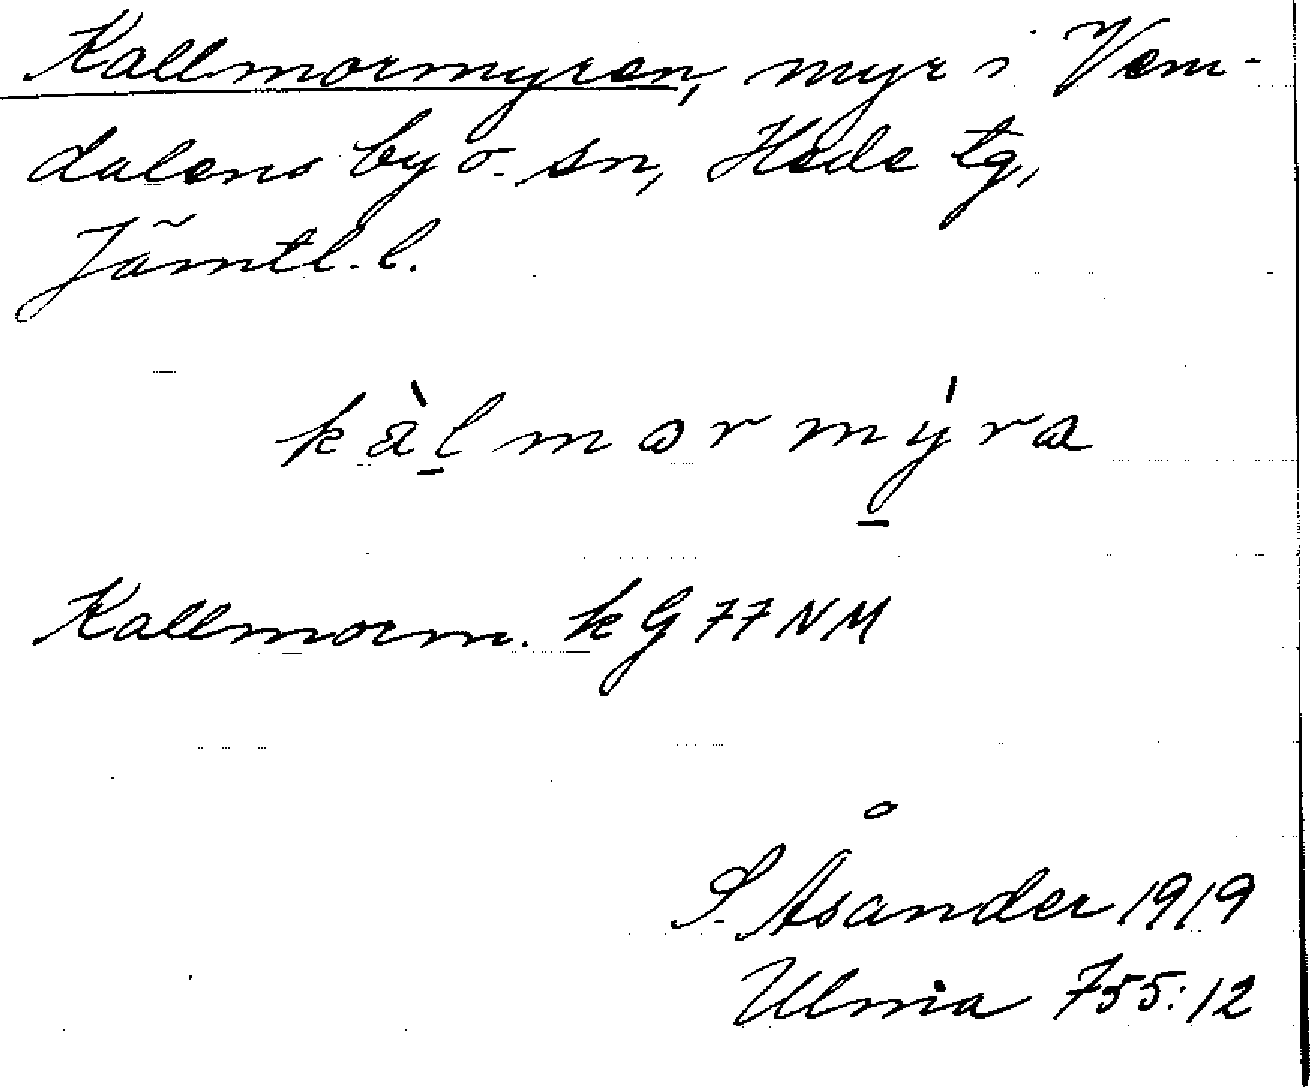 Kallmormyren, myr i Vem-
dalens by o. sn, Hede tg,
Jämtl. l.
kàl̠mormý̠ra
Kallmorm. kG 77 NM
S. Åsander 1919
Ulma 755:12